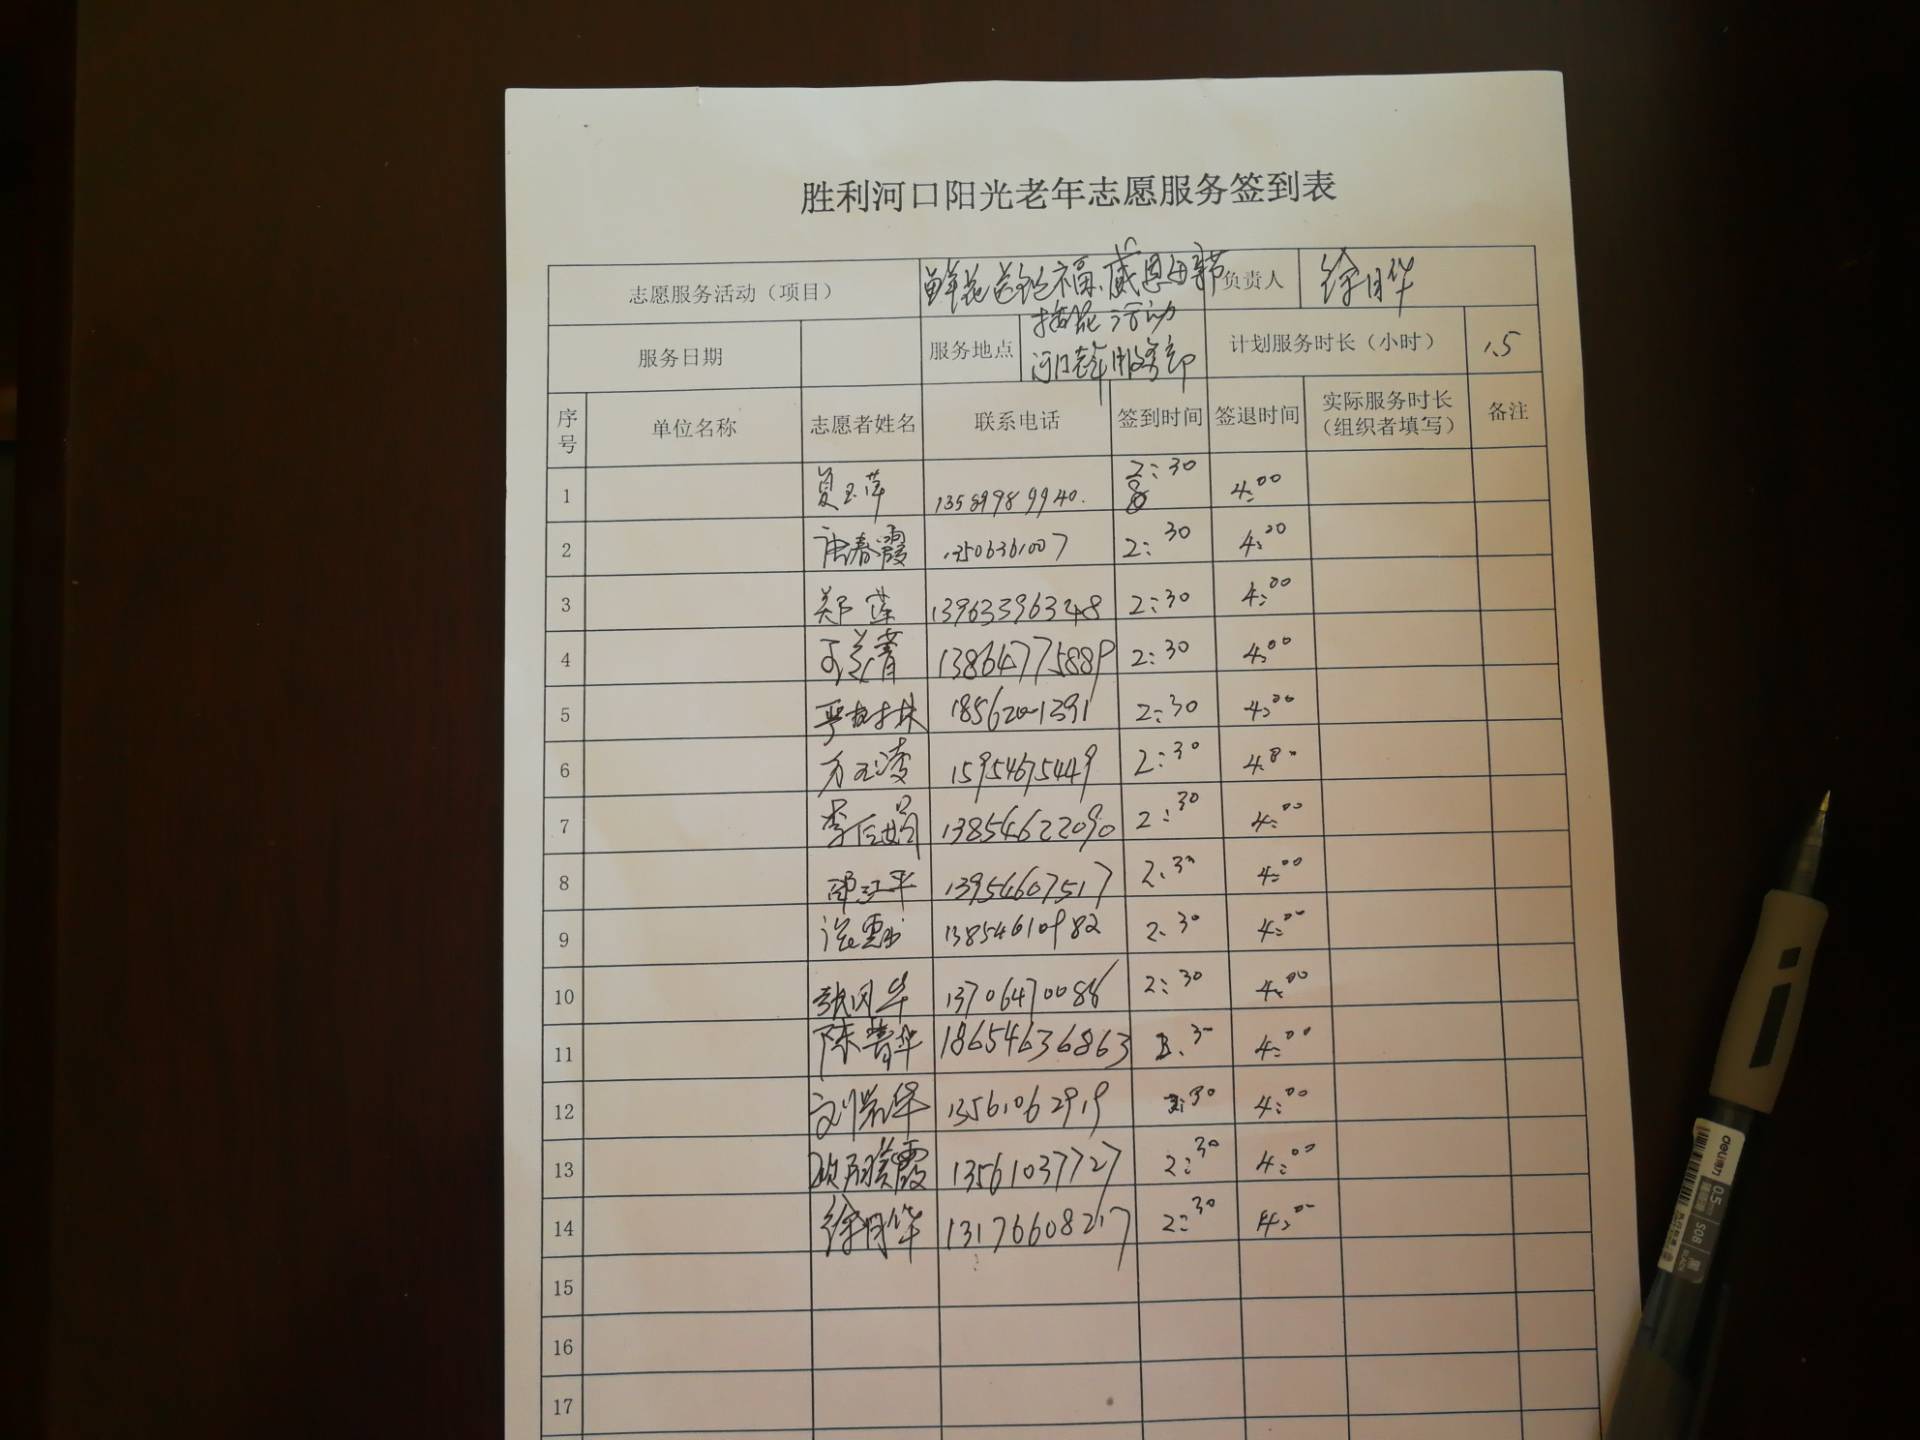 胜利河口阳光老年志愿服务签到表
志愿服务活动（项目） 鲜花送祝福、感恩母亲节 负责人 徐月华
插花活动
服务日期 服务地点 河口老年服务部 计划服务时长（小时） 1.5
序号 单位名称 志愿者姓名 联系电话 签到时间 签退时间 实际服务时长（组织者填写） 备注
1 夏玉萍 13589989940. 2:30 4:00
2 唐春霞 13506361007 2:30 4:00
3 郑萍 13963396348 2:30 4:00
4 13864775889 2:30 4:00
5 2:30 4:00
6 方玉凌 15954675449 2:30 4:00
7 李 13854622090 2:30 4:00
8 江平 13954607517 2:30 4:00
9 13854610982 2:30 4:00
10 张风华 13706470086 2:30 4:00
11 陈菁华 18654636863 2:30 4:00
12 刘荣华 13561062919 2:30 4:00
13 霞 13561037727 2:30 4:00
14 徐月华 13176608217 2:30 4:00
15
16
17
deli 0.5mm S08